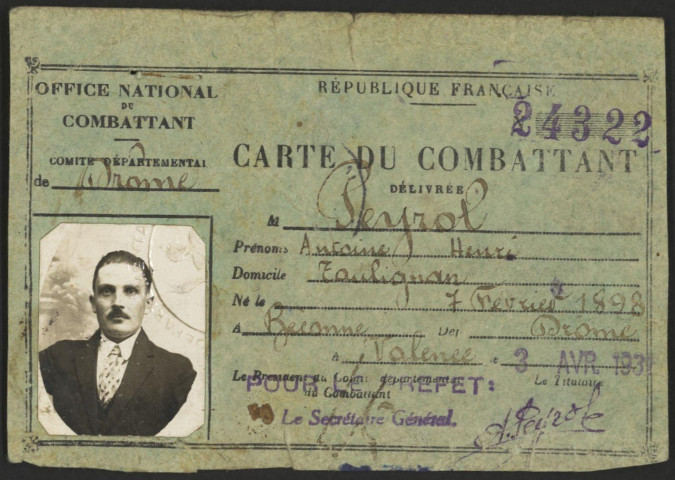 OFFICE NATIONAL
DU
COMBATTANT
COMITÉ DÉPARTEMENTAL
de Drôme
RÉPUBLIQUE FRANÇAISE
24322
CARTE DU COMBATTANT
DÉLIVRÉE
M Peyrol
Prénoms Antoine Henri
Domicile Taulignan
Né le 7 Février 1898
A Béconne Dpt Drôme
A Valence le 3 AVR 193
Le Président du Comité départemental
du Combattant
Le Titulaire
POUR LE PREFET:
Le Secrétaire Général.
A. Peyrol